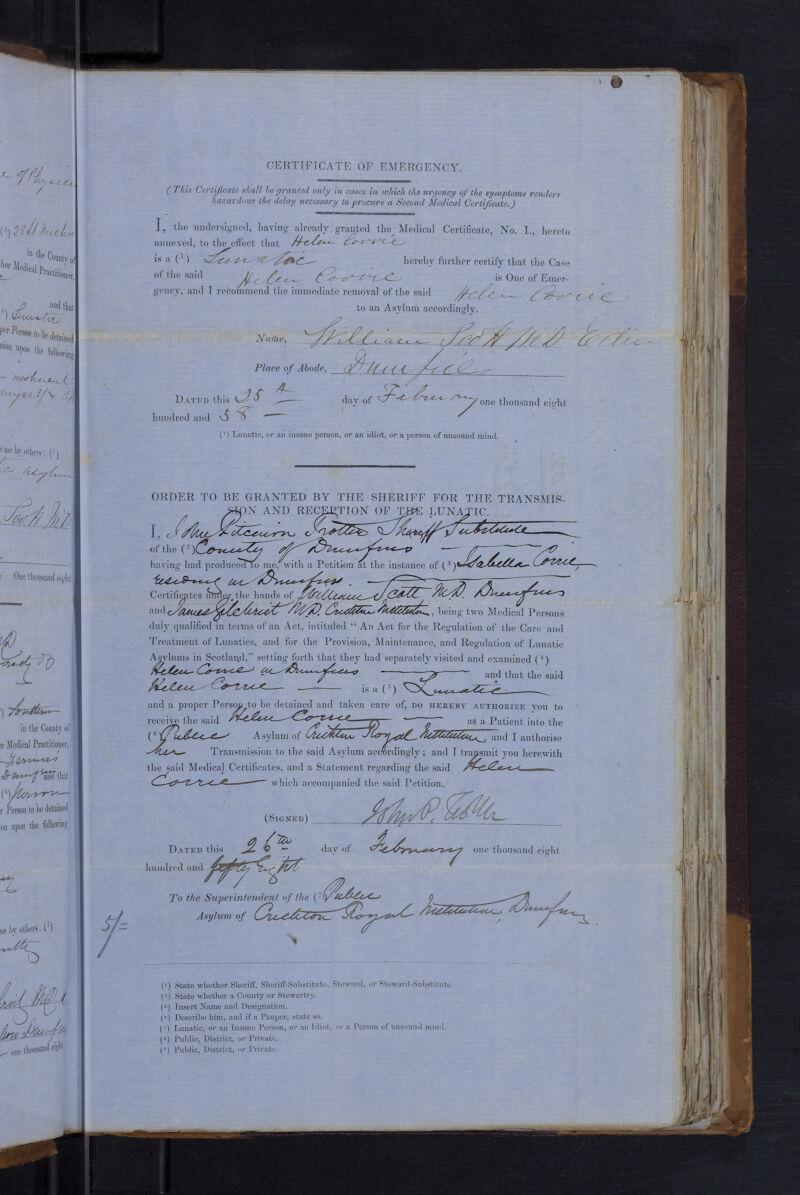 CERTIFICATE OF EMERGENCY.
(This Certificate shall be granted only in cases in which the urgency of the symptoms renders
hazardous the delay necessary to procure a Second Medical Certificate.)
I, the undersigned, having already granted the Medical Certificate, No. I., hereto
annexed, to the effect that Helen Corrie
is a (1) Lunatic hereby further certify that the Case
of the said Helen Corrie is One of Emer-
gency, and I recommend the immediate removal of the said Helen Corrie
to an Asylum accordingly.
Name, William Scott MD Edin
Place of Abode, Dumfries
DATED this 25th day of February one thousand eight
hundred and 58
(1) Lunatic, or an insane person, or an idiot, or a person of unsound mind.
ORDER TO BE GRANTED BY THE SHERIFF FOR THE TRANSMIS-
SION AND RECEPTION OF THE LUNATIC.
I, John Pitcairn Trotter Sheriff Substitute
of the (2) County of Dumfries
having had produced to me, with a Petition at the instance of (3) Isabella Corrie,
residing in Dumfries.
Certificates under the hands of William Scott M.D. Dumfries
and James Gilchrist M.D. Crichton Institution, being two Medical Persons
duly qualified in terms of an Act, intituled "An Act for the Regulation of the Care and
Treatment of Lunatics, and for the Provision, Maintenance, and Regulation of Lunatic
Asylums in Scotland," setting forth that they had separately visited and examined (4)
Helen Corrie in Dumfries and that the said
Helen Corrie is a (5) Lunatic
and a proper Person to be detained and taken care of, DO HEREBY AUTHORIZE you to
receive the said Helen Corrie as a Patient into the
(6) Public Asylum of Crichton Royal Institution, and I authorise
her Transmission to the said Asylum accordingly; and I transmit you herewith
the said Medical Certificates, and a Statement regarding the said Helen
Corrie which accompanied the said Petition.
(SIGNED) John P. Trotter
DATED this 26th day of February one thousand eight
hundred and fifty Eight
To the Superintendent of the (7) Public
Asylum of Crichton Royal Institution, Dumfries.
5/=
(1) State whether Sheriff, Sheriff-Substitute, Steward, or Steward-Substitute.
(2) State whether a County or Stewartry.
(3) Insert Name and Designation.
(4) Describe him, and if a Pauper, state so.
(5) Lunatic, or an Insane Person, or an Idiot, or a Person of unsound mind.
(6) Public, District, or Private.
(7) Public, District, or Private.
in the County of
her Medical Practitioner,
and that
(1) Lunatic
per Person to be detained
nion upon the following
incoherent
myself &
me by others: (2)
asylum
Scott MD
One thousand eight
(1) Southern
in the County of
er Medical Practitioner,
and that
(2) Person
r Person to be detained
on upon the following
ne by others. (2)
one thousand eight